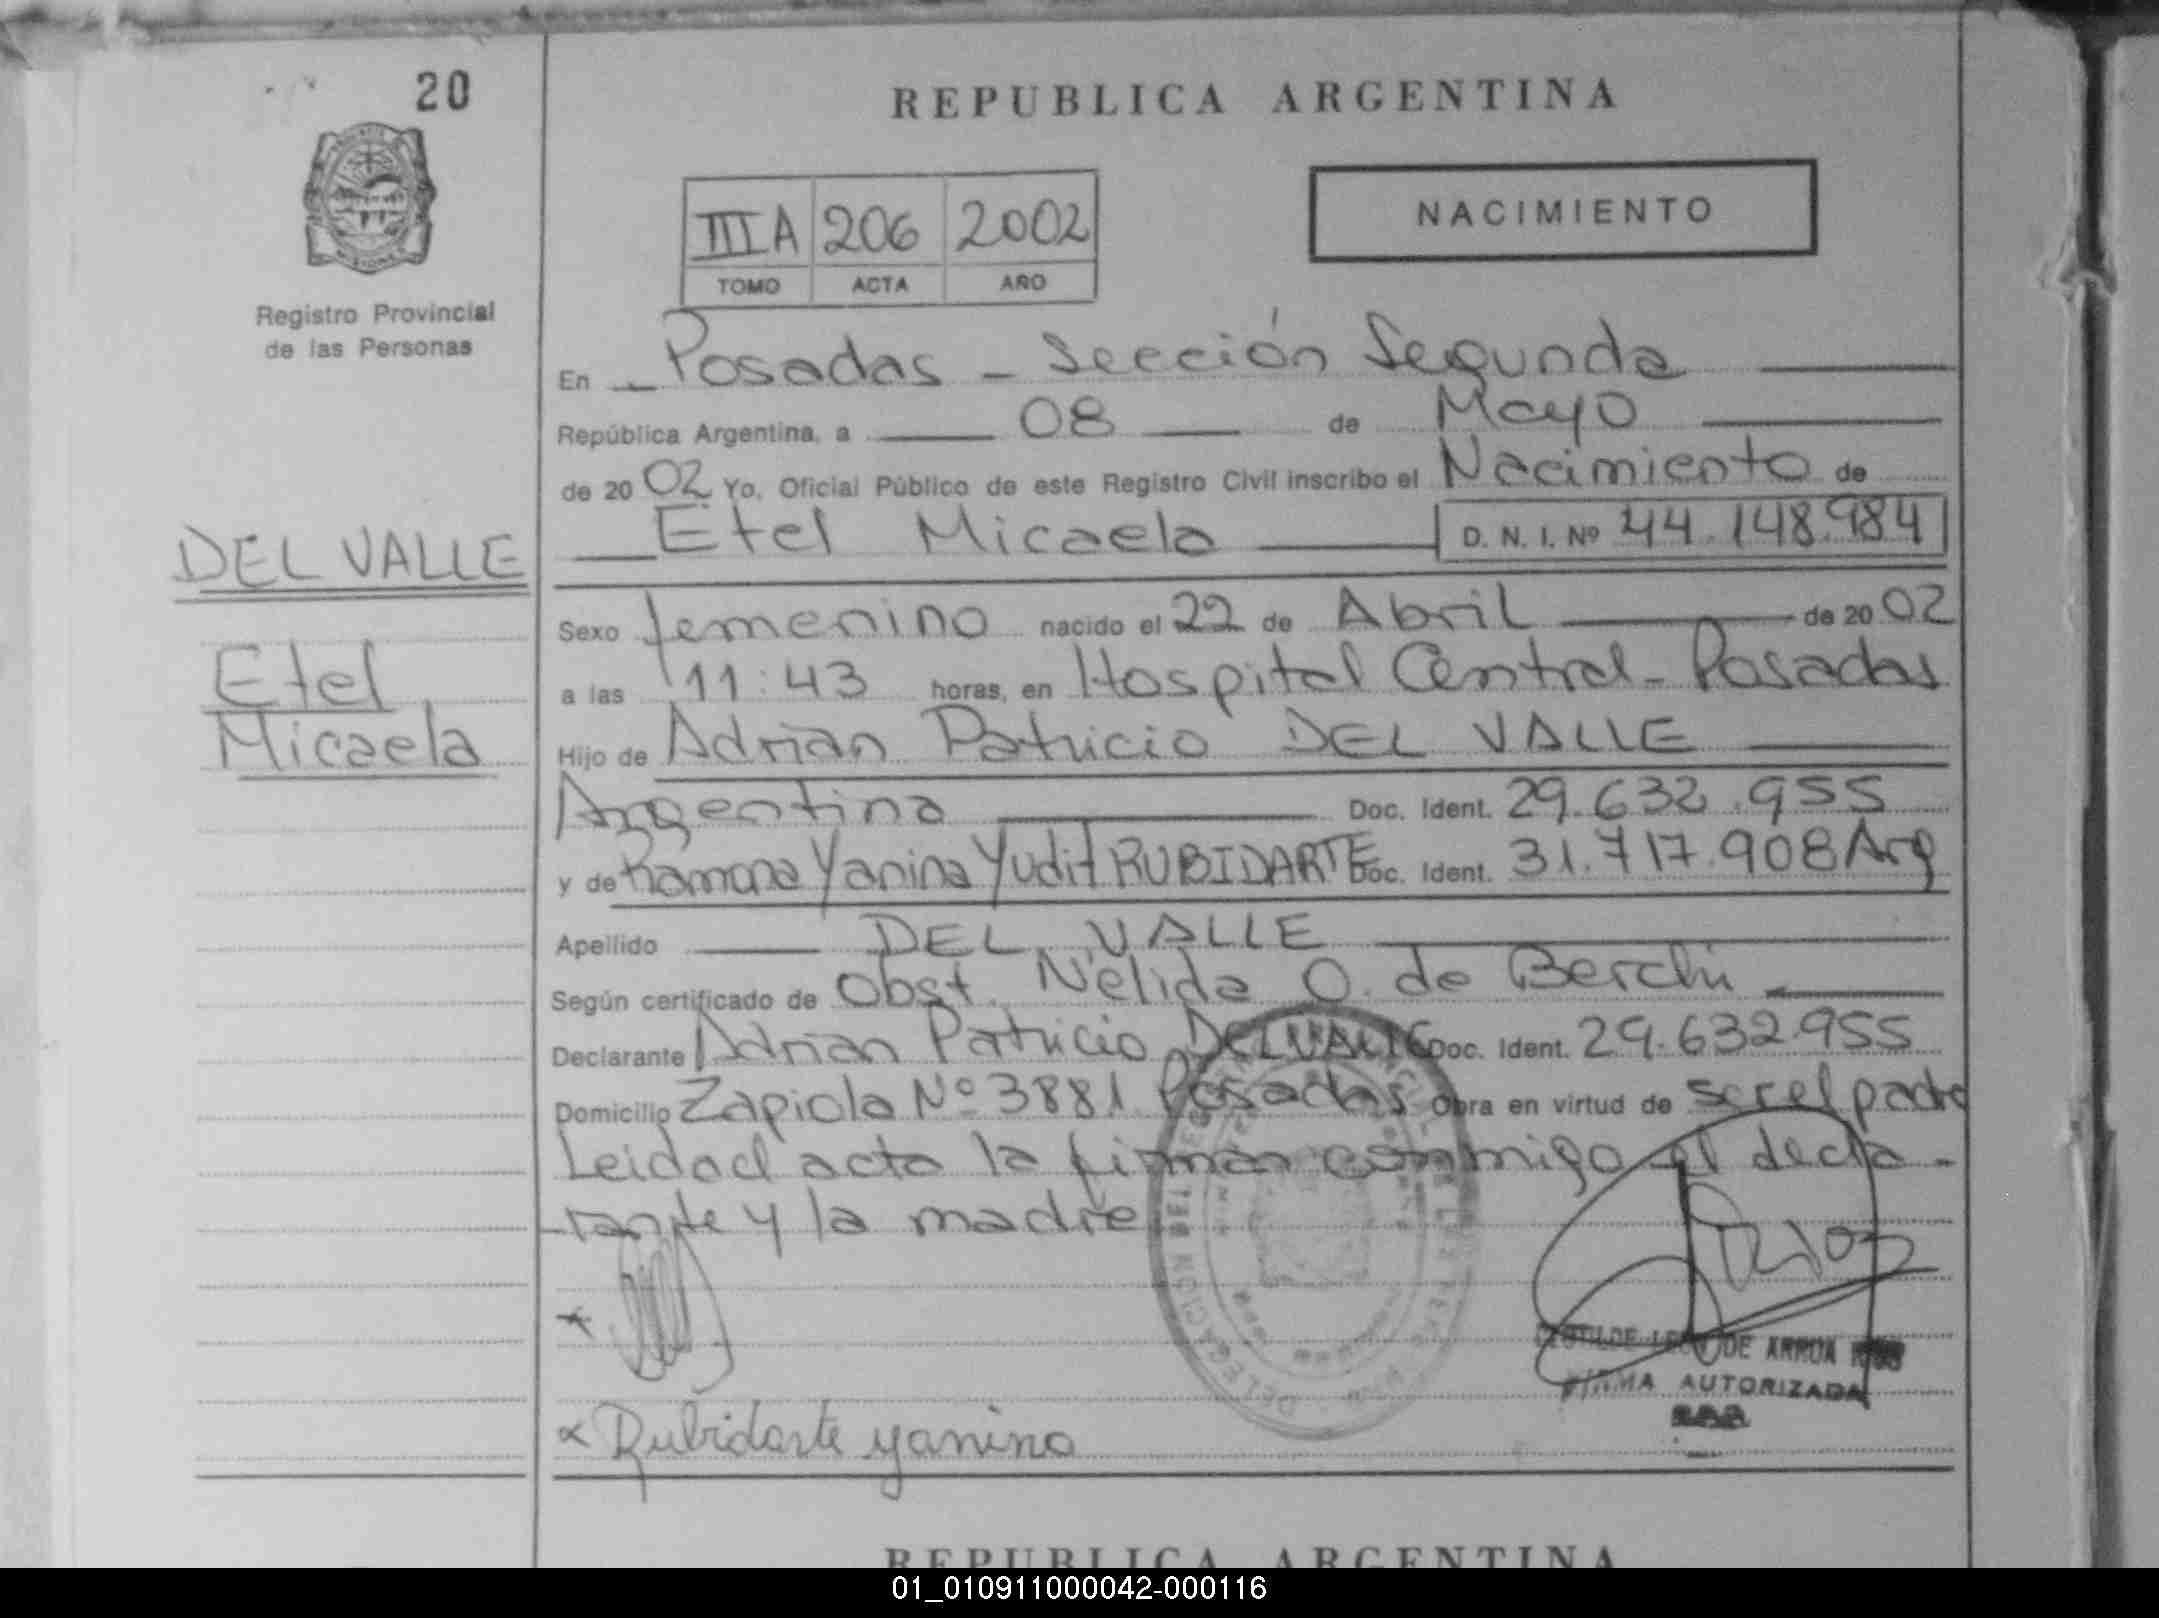 20
REPUBLICA ARGENTINA
NACIMIENTO
III A 206 2002
TOMO ACTA AÑO
Registro Provincial
de las Personas
En Posadas - Sección Segunda
República Argentina, a 08 de Mayo
de 2002 Yo, Oficial Público de este Registro Civil inscribo el Nacimiento de
Etel Micaela D. N. I. Nº 44.148.984
DEL VALLE
Etel
Micaela
Sexo femenino nacido el 22 de Abril de 2002
a las 11:43 horas, en Hospital Central - Posadas
Hijo de Adrian Patricio DEL VALLE
Argentina Doc. Ident. 29.632.955
y de Ramona Yanina Yudit RUBIDARTE Doc. Ident. 31.717.908 Arg
Apellido DEL VALLE
Según certificado de Obst. Nélida O. de Berchi
Declarante Adrian Patricio DEL VALLE Doc. Ident. 29.632.955
Domicilio Zapiola Nº 3881 Posadas Obra en virtud de ser el padre
Leida el acta la firman conmigo el decla-
rante y la madre
DE ARRUA
FIRMA AUTORIZADA
x Rubidarte yanina
REPUBLICA ARGENTINA
01_010911000042-000116